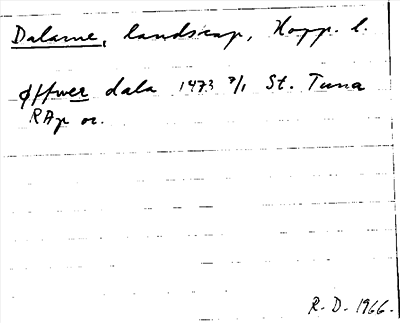 Dalarne, landskap, Kopp. l.
øffwer dala 1473 7/1 St. Tuna
RAp or.
R. D. 1966.